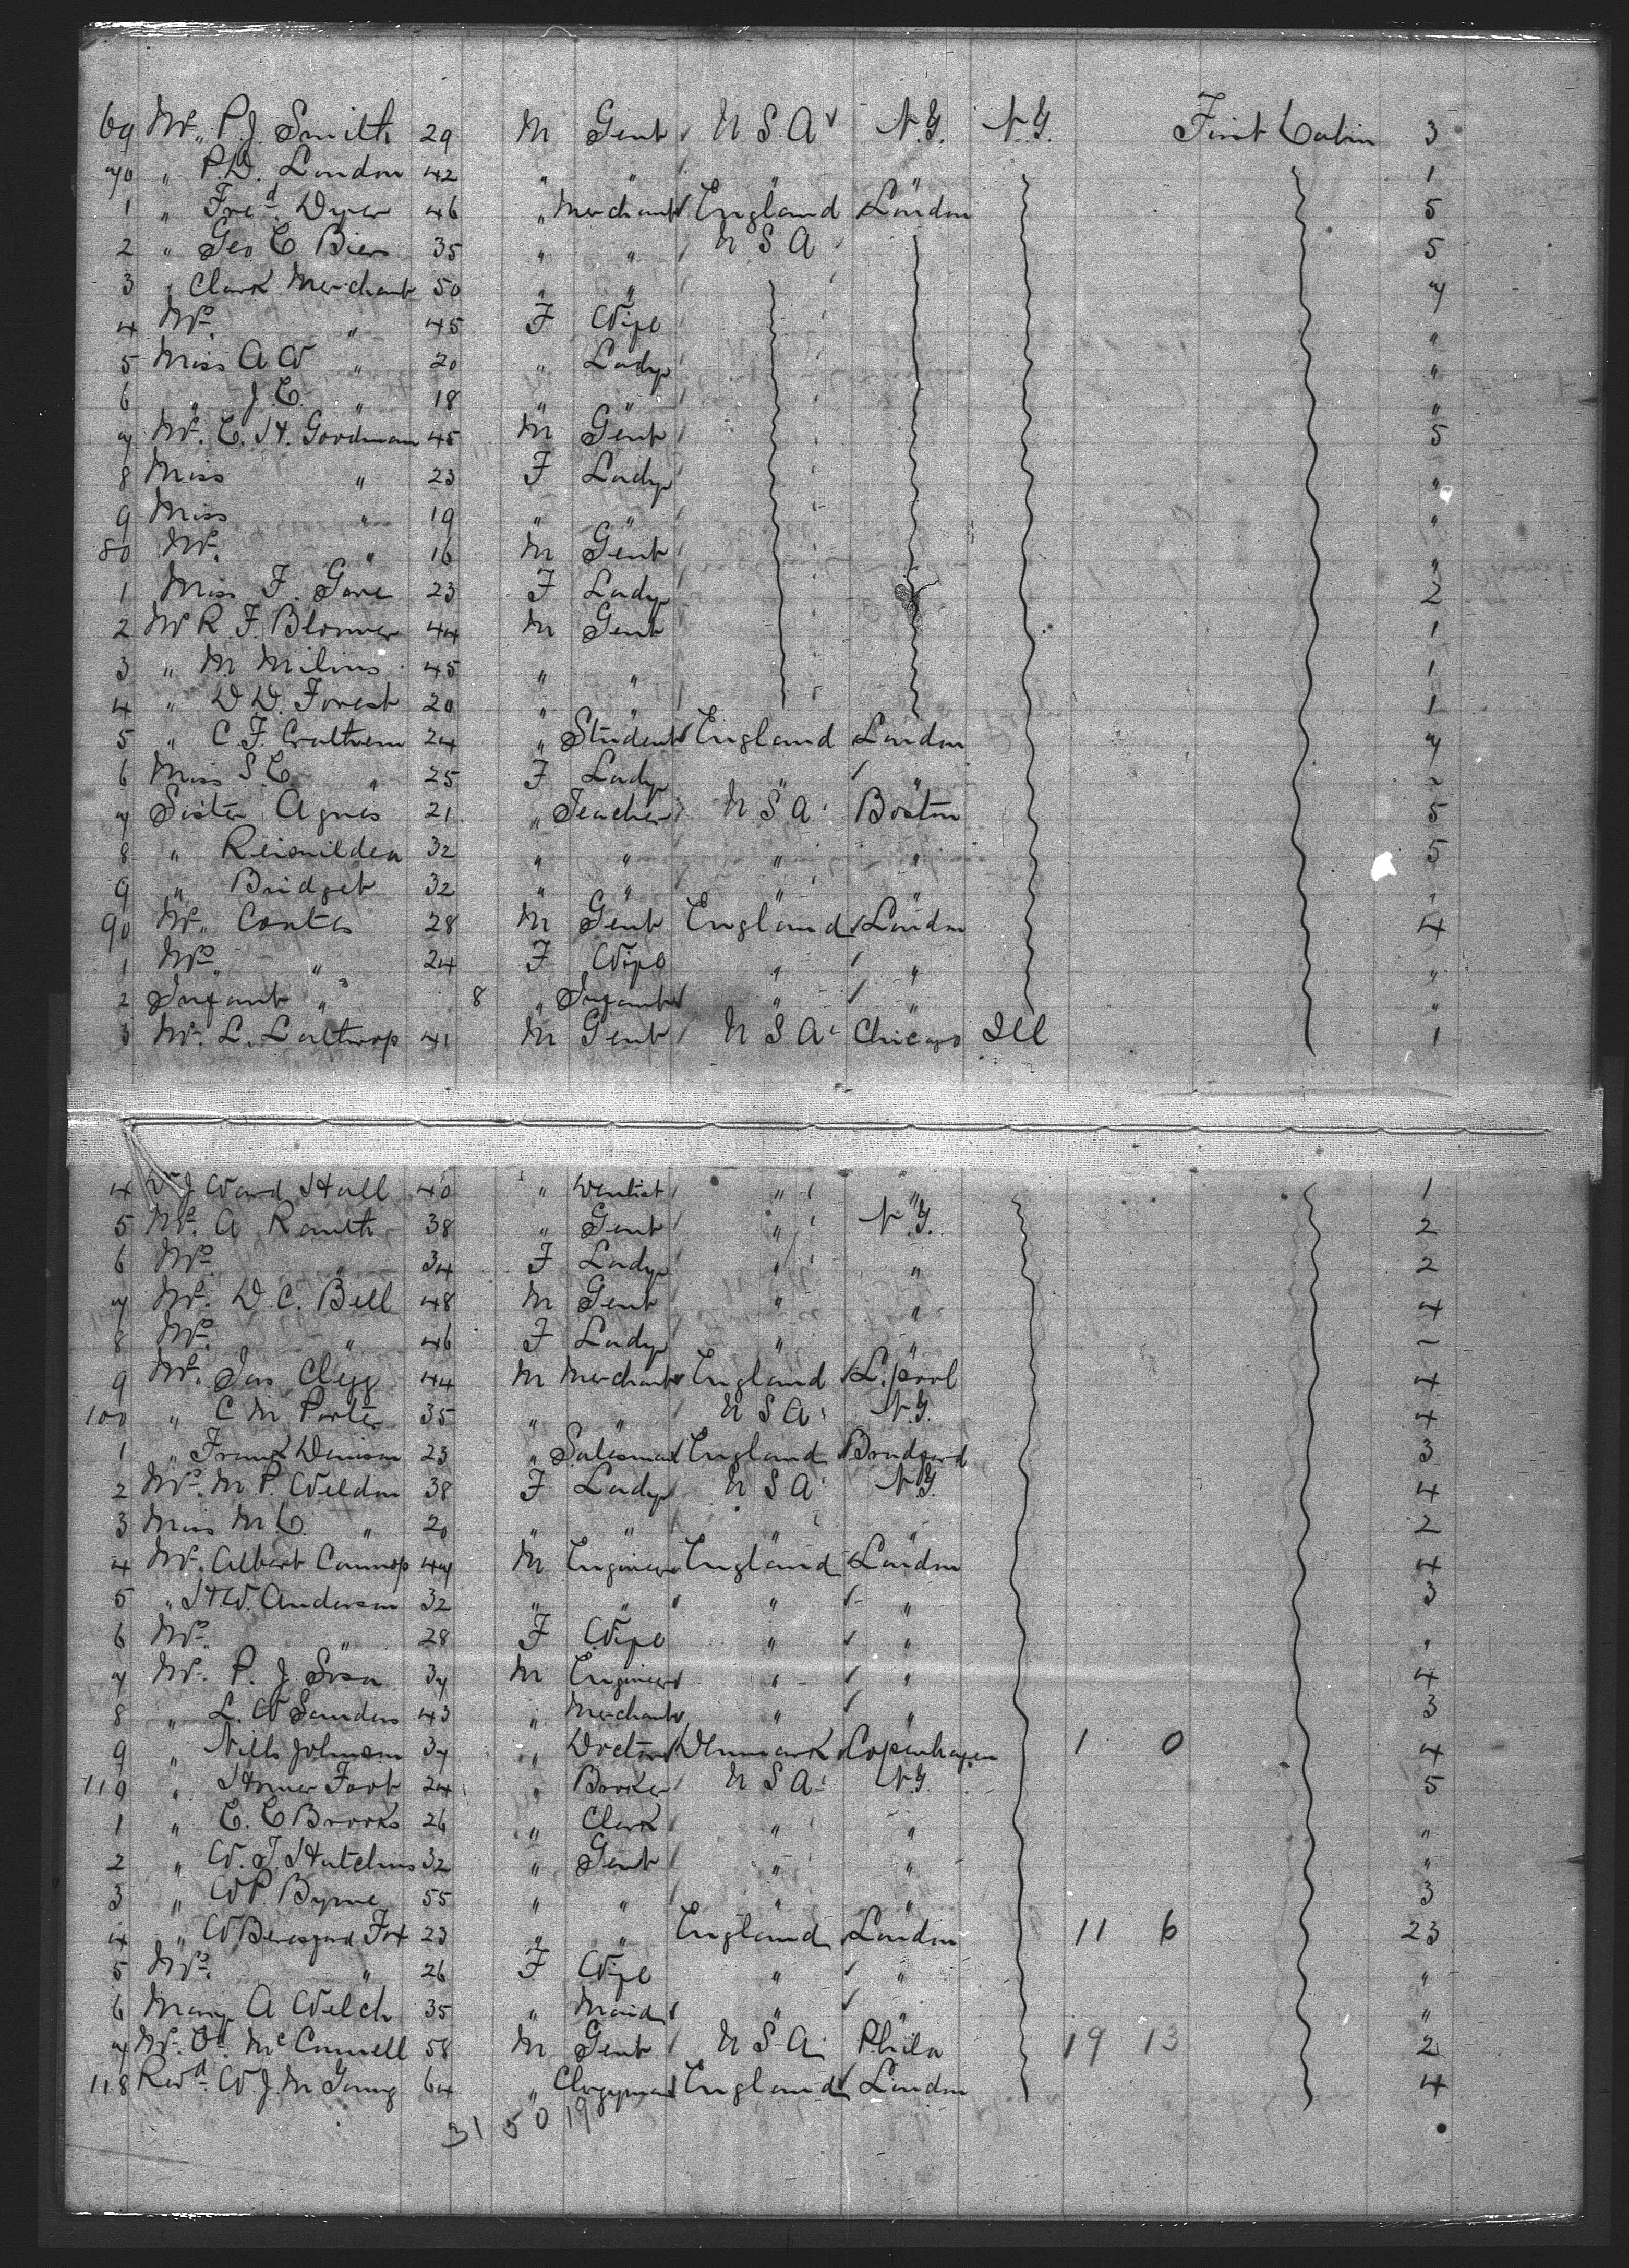 69 Mr. P.J. Smith 29 M Gent U S A N.Y. N.Y. First Cabin 3
70 " P.D. London 42 " " " " 1
1 " Fred. Dyer 46 " Merchant England London 5
2 " Geo E Bier 35 " " U S A 5
3 " Clark Merchant 50 " " 7
4 Mrs. " 45 F Wife "
5 Miss A W " 20 " Lady "
6 " J.E. " 18 " " "
7 Mr. E. H. Goodman 45 M Gent 5
8 Miss " 23 F Lady "
9 Miss " 19 " " "
80 Mr. " 16 M Gent "
1 Miss F. Gore 23 F Lady 2
2 Mr R. F. 44 M Gent 1
3 " M 45 " " 1
4 " D D. Forest 20 " " 1
5 " C F. 24 " Student England London 7
6 Miss S.E. " 25 F Lady " " ~
7 Sister Agnes 21 " Teacher U S A Boston 5
8 " 32 " " " " 5
9 " Bridget 32 " " " " "
90 Mr. Coates 28 M Gent England London 4
1 Mrs " 24 F Wife " " "
2 Infant " 8 " Infant " " "
3 Mr. L. Lathrop 41 M Gent U S A Chicago Ill 1
4 Dr J Ward Hall 40 " Dentist " " 1
5 Mr. A 38 " Gent " N.Y. 2
6 Mrs " 34 F Lady " " 2
7 Mr. D. C. Bell 48 M Gent " " 4
8 Mrs. " 46 F Lady " " ~
9 Mr. Jas Clegg 44 M Merchant England L.pool 4
100 " C M Porter 35 " " U S A N.Y. 4
1 " Frank Denison 23 " Salesman England Bradford 3
2 Mrs. M P. Weldon 38 F Lady U S A N.Y. 4
3 Miss M. E. " 20 " " " 2
4 Mr. Albert 47 M Engineer England London 4
5 " H W. Anderson 32 " " " " 3
6 Mrs. " 28 F Wife " " "
7 Mr. P. J. 37 M Engineer " " 4
8 " L. W Sanders 43 " Merchant " " 3
9 " Nills Johnson 37 " Doctor Denmark Copenhagen 1 0 4
110 " Homer Foot 24 " U S A N.Y. 5
1 " E. E Brooks 26 " Clerk " " "
2 " W. J. Hutchins 32 " Gent " " "
3 " W P Byrne 55 " " " " 3
4 " W Beresford Fox 23 " " England London 11 6 23
5 Mrs. " 26 F Wife " " "
6 Mary A Welch 35 " Maid " " "
7 Mr. McConnell 58 M Gent U S A Phila 19 13 2
118 Revd. W J. M 64 " Clergyman England London 4
31 50 19